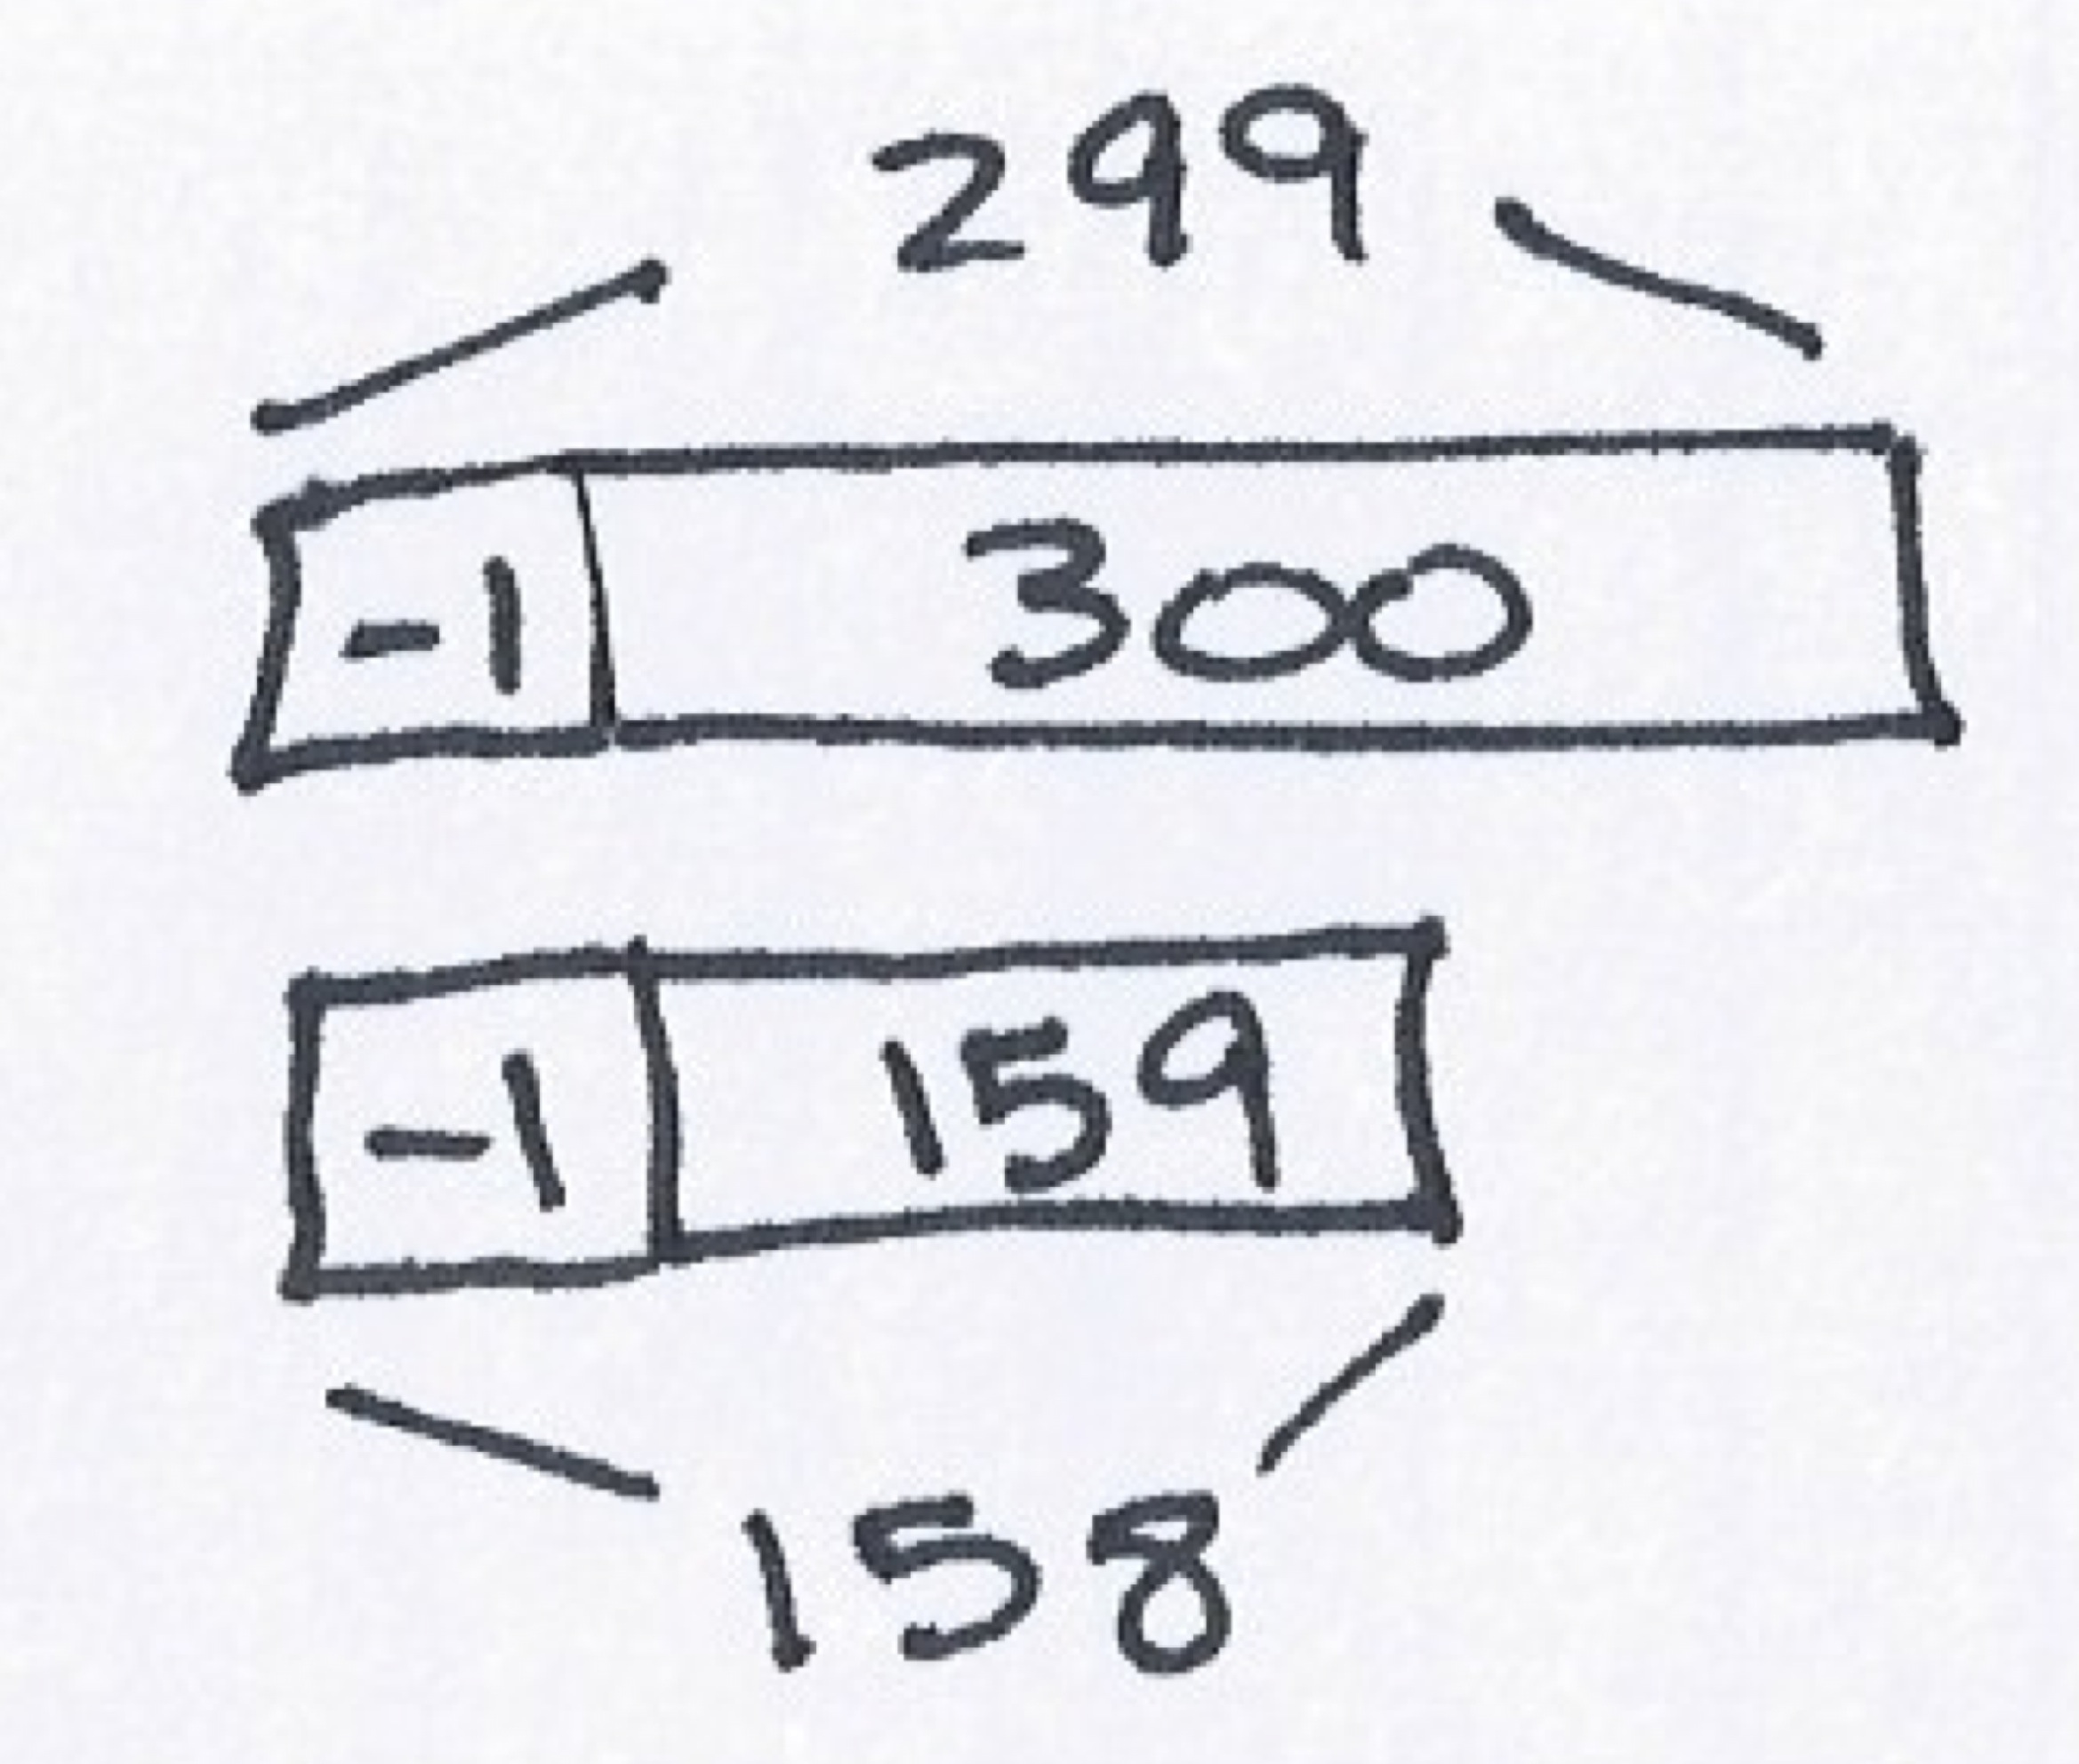 299
-1 300
-1 159
158